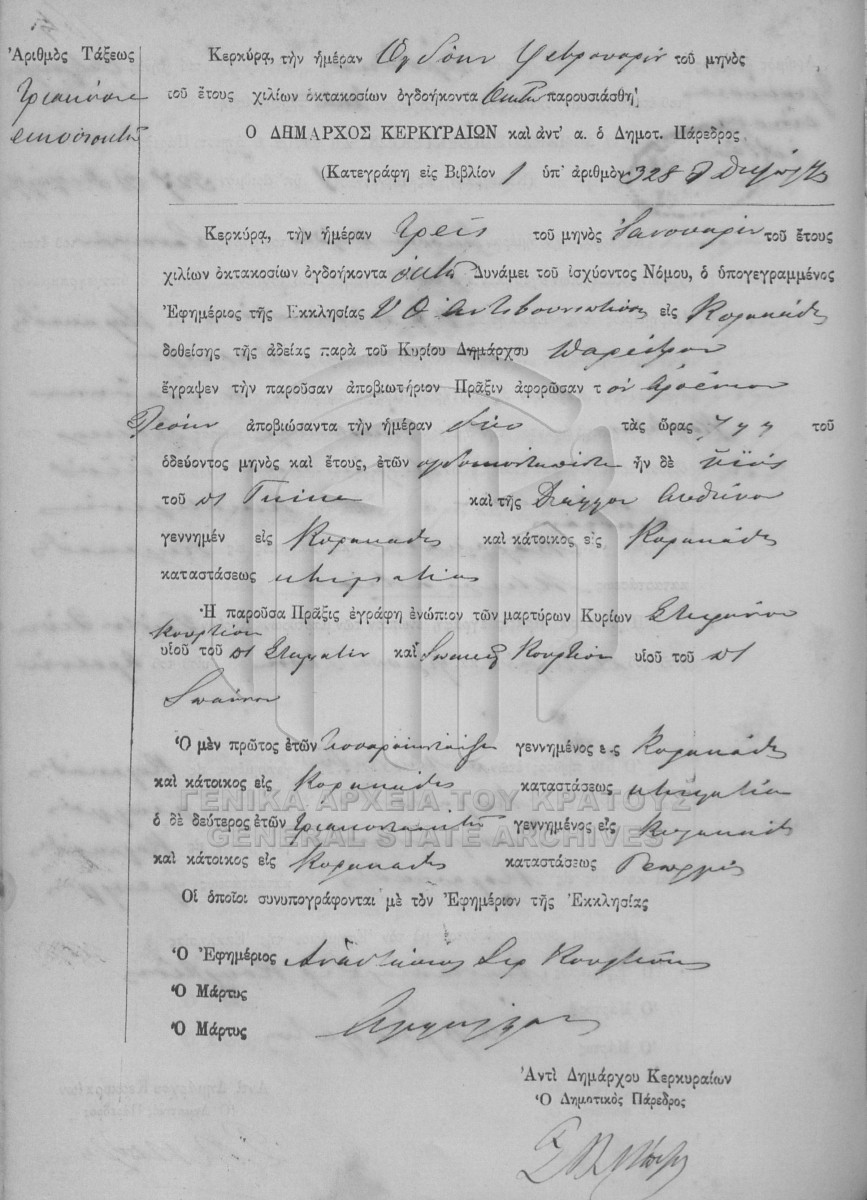 Ἀριθμὸς Τάξεως
Τριακόσια
εικοσιοκτώ
Κερκύρᾳ, τὴν ἡμέραν Ὀγδόην Φεβρουαρίου τοῦ μηνὸς
τοῦ ἔτους χιλίων ὀκτακοσίων ὀγδοήκοντα Ὀκτὼ παρουσιάσθη
Ο ΔΗΜΑΡΧΟΣ ΚΕΡΚΥΡΑΙΩΝ καὶ ἀντ' α. ὁ Δημοτ. Πάρεδρος
(Κατεγράφη εἰς Βιβλίον 1 ὑπ' ἀριθμὸν 328
Κερκύρᾳ, τὴν ἡμέραν τρεῖς τοῦ μηνὸς Ἰανουαρίου τοῦ ἔτους
χιλίων ὀκτακοσίων ὀγδοήκοντα ὀκτὼ Δυνάμει τοῦ ἰσχύοντος Νόμου, ὁ ὑπογεγραμμένος
Ἐφημέριος τῆς Εκκλησίας Υ Θ Αντιβουνιωτίσσης εἰς Κορακάδες
δοθείσης τῆς ἀδείας παρὰ τοῦ Κυρίου Δημάρχου Παρέδρου
ἔγραψεν τὴν παροῦσαν ἀποβιωτήριον Πρᾶξιν ἀφορῶσαν τ ον Ἀρσένιον
ἀποβιώσαντα τὴν ἡμέραν δύο τὰς ὥρας 7 π μ τοῦ
ὁδεύοντος μηνὸς καὶ ἔτους, ἐτῶν ογδοηκονταπέντε ἦν δὲ υἱὸς
τοῦ καὶ τῆς
γεννημέν εἰς Κορακάδες καὶ κάτοικος εἰς Κορακάδες
καταστάσεως κτηματίας
Ἡ παροῦσα Πρᾶξις ἐγράφη ἐνώπιον τῶν μαρτύρων Κυρίων Στεφάνου
Κουρτέση
υἱοῦ τοῦ Σταματίου καὶ Κουρτέση υἱοῦ τοῦ
Ἰωάννου
Ὁ μὲν πρῶτος ἐτῶν γεννημένος εις Κορακάδες
καὶ κάτοικος εἰς Κορακάδες καταστάσεως κτηματία
ὁ δὲ δεύτερος ἐτῶν τριακονταοκτώ γεννημένος εἰς Κορακάδες
καὶ κάτοικος εἰς Κορακάδες καταστάσεως Γεωργός
Οἱ ὁποῖοι συνυπογράφονται μὲ τὸν Ἐφημέριον τῆς Ἐκκλησίας
Ὁ Ἐφημέριος Ἀναστάσιος Κουρτέσης
Ὁ Μάρτυς
Ὁ Μάρτυς
Ἀντὶ Δημάρχου Κερκυραίων
Ὁ Δημοτικὸς Πάρεδρος
ΓΕΝΙΚΑ ΑΡΧΕΙΑ ΤΟΥ ΚΡΑΤΟΥΣ
GENERAL STATE ARCHIVES